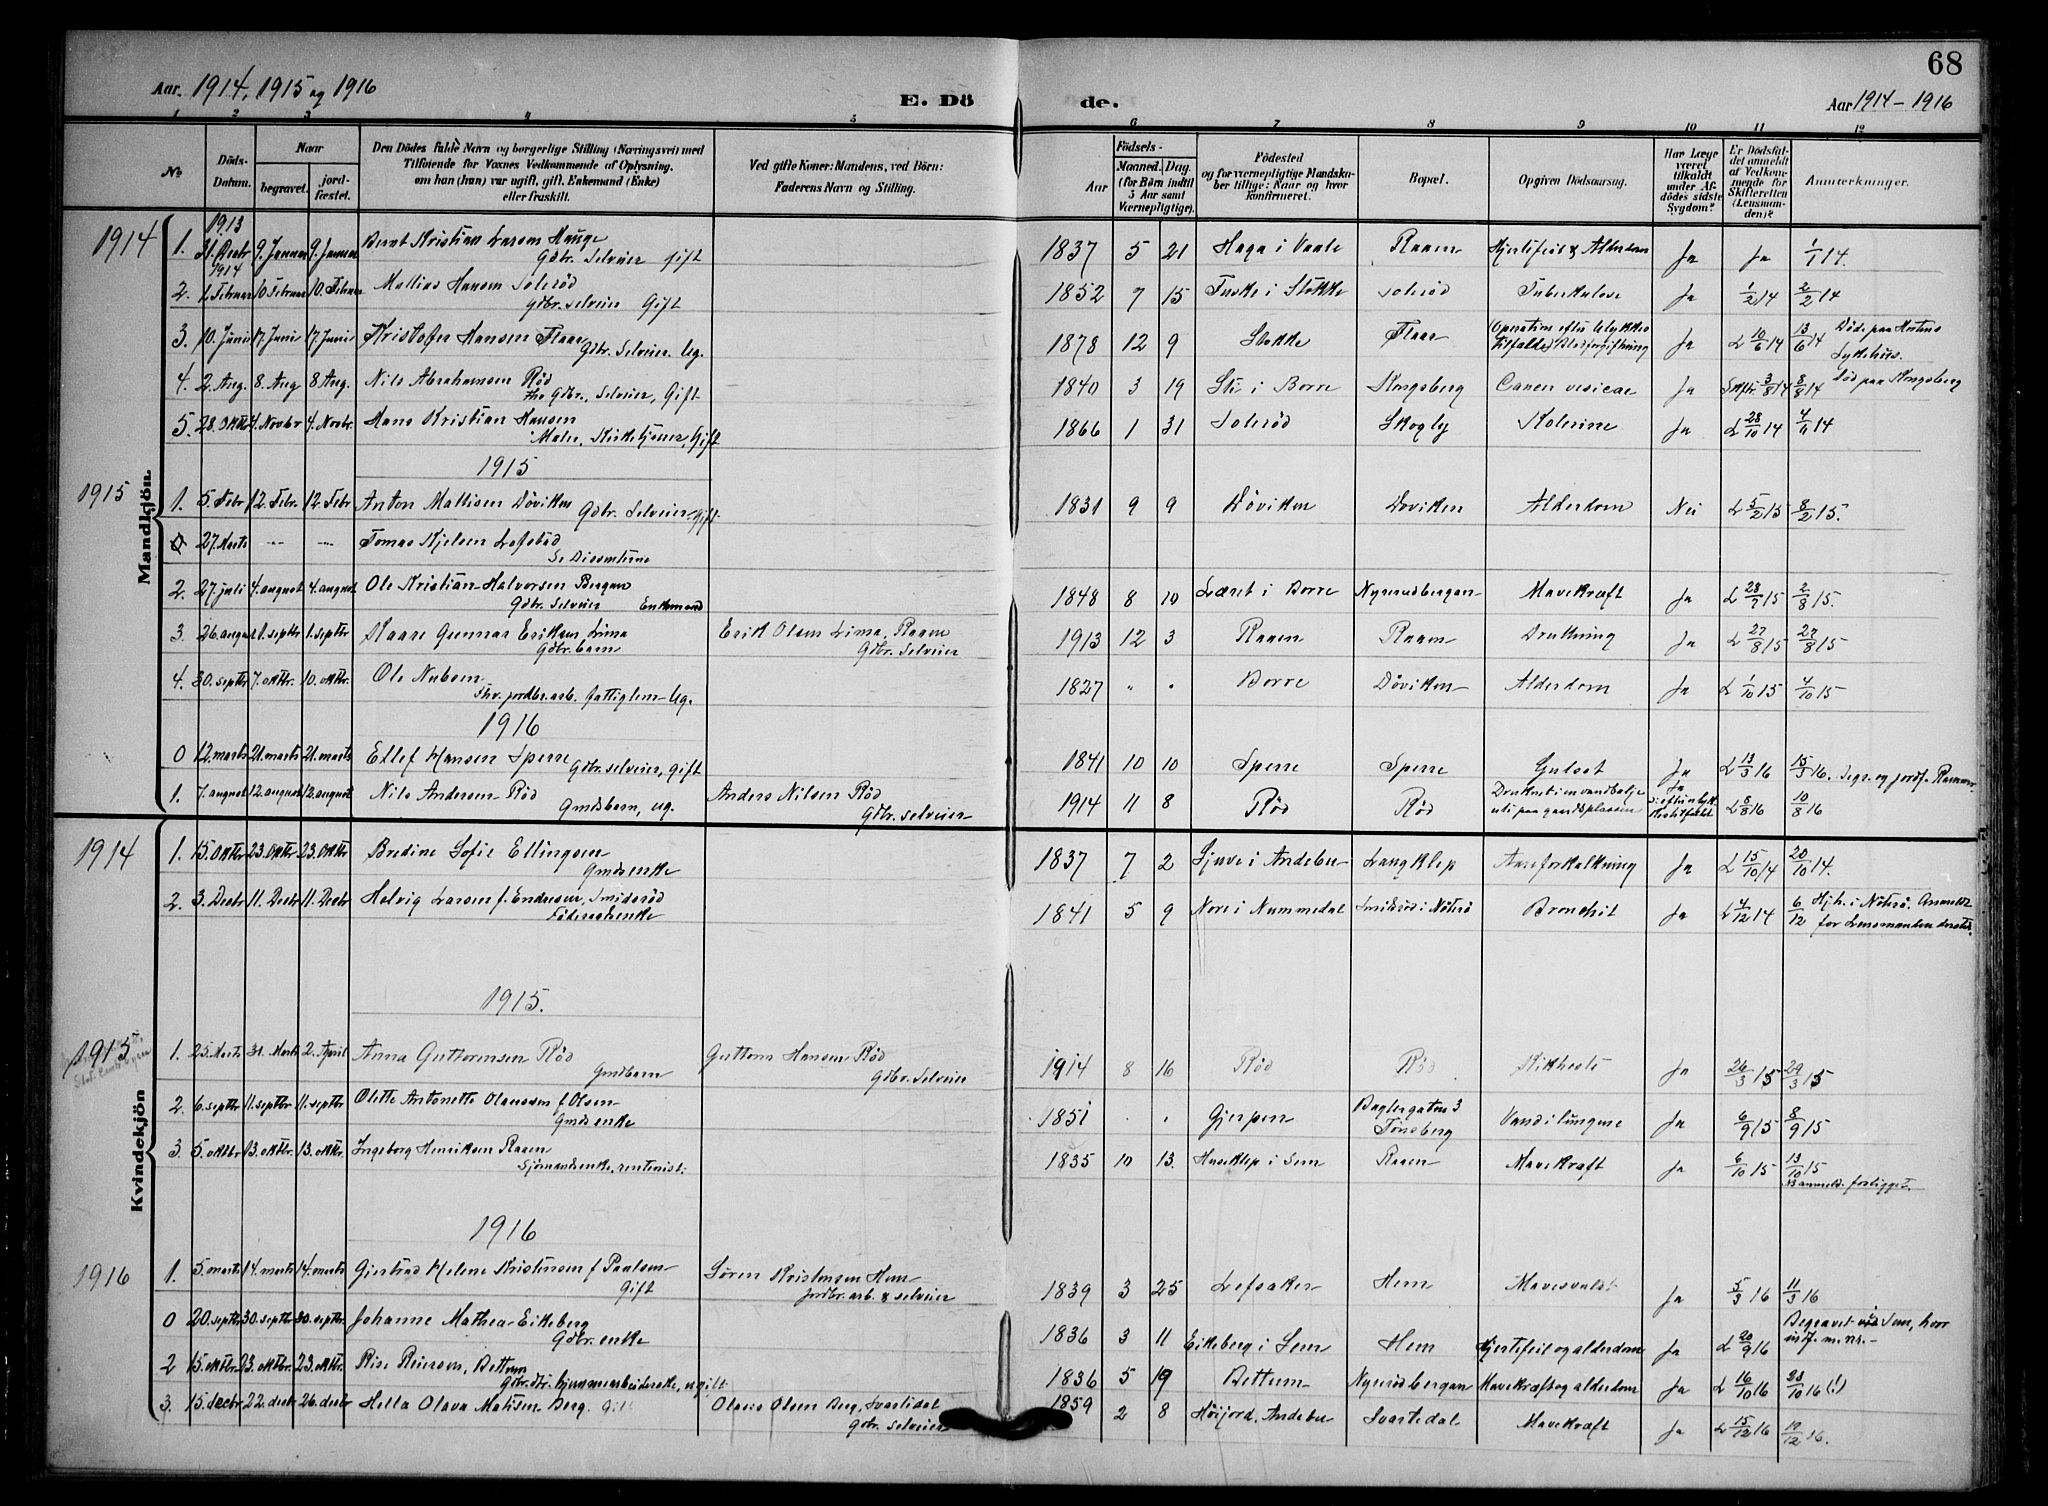 68
Aar. 1914, 1915 og 1916
E. Dö de.
Aar 1914 - 1916
1 2 3 4 5 6 7 8 9 10 11 12
No
Döds-Datum.
Naar
begravet.
jord-fæstet.
Den Dödes fulde Navn og borgerlige Stilling (Næringsvei) med
Tilföiende for Voxnes Vedkommende af Oplysning,
om han (hun) var ugift, gift, Enkemand (Enke)
eller fraskilt.
Ved gifte Koner: Mandens, ved Börn:
Faderens Navn og Stilling.
Födsels-
Aar
Maaned.
Dag.
(for Börn indtil
5 Aar samt
Værnepligtige).
Födested
og for værnepligtige Mandska-
ber tillige: Naar og hvor
konfirmeret.
Bopæl.
Opgiven Dödsaarsag.
Har Læge
været
tilkaldt
under Af-
dödes sidste
Sygdom?
Er Dödsfal-
det anmeldt
af Vedkom-
mende for
Skifteretten
(Lensman-
den)?
Anmærkninger.
Mandkjön.
1914
1. 1913 31. Decbr 9. Januar 9. Januar Bernt Kristian Larsen Hauge Gdbr. Selveier Gift 1837 5 21 Haga i Vaale Raaen Hjertefeil & Alderdom Ja Ja 1/1 14.
2. 1914 1. Februar 10. Februar 10. Februar Mathias Hansen Solerød Gdbr. Selveier Gift 1852 7 15 Fuske i Stokke Solerød Tuberkulose Ja 1/2 14 2/2 14
3. 10. Juni 17. Juni 17. Juni Kristofer Hansen Flaar Gdbr. Selveier Ug. 1878 12 9 Stokke Flaar (Operation efter Ulykkestilfælde) Blodforgiftning Ja L 10/6 14 13/6 14 Døde paa Hortens Sykehus.
4. 2. Aug. 8. Aug 8 Aug. Nils Abrahamsen Rød fhv Gdbr., Selveier, Gift 1840 3 19 Sti i Borre Kongsberg Cancer vesicae Ja Skfr 3/8 14 8/8 14 Død paa Kongsberg
5. 28. Oktbr 4. Novbr 4. Novbr. Hans Kristian Hansen Maler, Kirketjener, Gift 1866 1 31 Solerød Skogly Kolerine Ja L 28/10 14 4/11 14
1915
1915
1. 5. Febr 12. Febr. 12. Febr Anton Mathisen Døviken Gdbr. Selveier Gift 1831 9 9 Døviken Døviken Alderdom Nei L 5/2 15 8/2 15.
0 27. Marts Tomas Kjelsen Lefsbød Se Dissenterne
2. 27. juli 4. august 4. august Ole Kristian Halvorsen Bergan Gdbr. Selveier Enkemand 1848 8 10 Læret i Borre Nyrerødbergan Mavekræft Ja L 28/7 15 2/8 15.
3 26. august 1. septbr 1. septbr Kaare Gunnar Eriksen Lima Gdbr. barn Erik Olsen Lima, Raaen Gdbr. Selveier 1913 12 3 Raaen Raaen Drukning Ja L 27/8 15 27/8 15
4. 30. septbr 7. oktbr. 10. oktbr. Ole Nubsen Fhv. jordbr. arb. fattiglem - Ug. 1827 " " Borre Døviken Alderdom Ja L 1/10 15 4/10 15
1916
0 12. marts 21. marts 21. marts Ellef Hansen Sperre Gdbr. selveier, gift 1841 10 10 Sperre Sperre Gulsot Ja L 13/3 16 15/3 16. Begr. og jordf. Ramnes
1. 7. august 12. august 12. august Nils Andersen Rød Gmdsbarn, ug. Anders Nilsen Rød Gdbr. selveier 1914 11 8 Rød Rød Druknet i en vandbalje ute paa gaardsplassen Ja L 8/8 16 10/8 16
Kvindekjön
1914
1. 15. Oktbr 23. Oktbr 23. Oktbr Bredine Sofie Ellingsen Gmdsenke 1837 7 2 Sjuve i Andebu Langklep Aareforkalkning Ja L 15/10 14 20/10 14.
2. 3. Decbr 11. Decbr 11. Decbr Helvig Larsen f. Endresen, Smidsrød Føderaadsenke 1841 5 9 Nore i Nummedal Smidsrød i Nøterø Bronchit Ja L 4/12 14 6/12 Hjh. i Nøterø. Anmeldt for Lensmanden dersteds.
1915.
1915
1. 25. Marts 31. Marts 2. April Anna Guttormsen Rød Gmdbarn Guttorm Hansen Rød Gdbr. Selveier 1914 8 16 Rød Rød Kikhoste Ja 26/3 15 29/3 15
2. 6. septbr 11. septbr 11. septbr Olette Antonette Olaussen f Olsen Gmdsenke 1851 Gjerpen Baglergaten 3 Tønsberg Vand i lungene Ja 6/9 15 8/9 15
3 5. oktbr 13. oktbr. 13. oktbr. Ingeborg Henriksen Raaen Sjømandsenke, rentenist. 1835 10 13. Husklep i Sem Raaen Mavekræft Ja 6/10 15 13/10 15 N anmeld. foreligget.
1916
1916
1. 5. marts 14. marts 14. marts Gjertrud Helene Kristensen f Paulsen Gift Søren Kristensen Hem jordbr. arb. & selveier 1839 3 25 Lefsaker Hem Mavesvulst Ja 5/3 16 11/3 16
0 20. septbr 30. septbr 30. septbr. Johanne Mathea Eikeberg Gdbr. enke 1836 3 11 Eikeberg i Sem Hem Hjertefeil og alderdom Ja L 20/9 16 Begravet i Sem, hvor indf. m. nr. -
2 15. oktbr 23. oktbr 23. oktbr. Rise Reiersen, Bettum ugift 1836 5 19 Bettum Nyrerødbergan Mavekræft og alderdom Ja L 16/10 16 23/10 16 (!)
3. 15. decbr 22. decbr 26. decbr Hella Olava Matisen Berg. Gift Olaus Olsen Berg, Svartedal Gdbr. selveier 1859 2 8 Høijord, Andebu Svartedal Mavekræft Ja L 15/12 16 19/12 16.